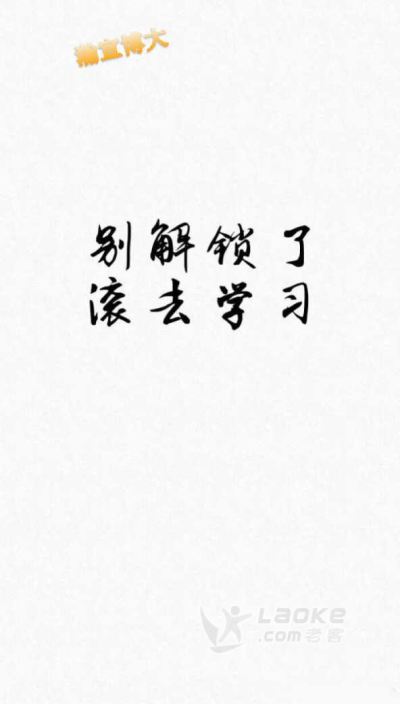 宣博大
别解锁了
滚去学习
LAOKE
.com老客